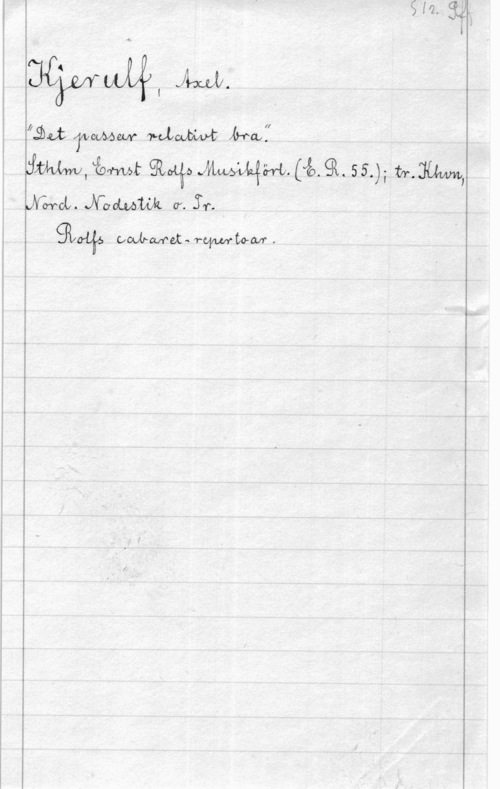 S 12.
Kjerulf, Axel.
"Det passar relativt bra."
Sthlm, Ernst Rolfs Musikförl. (E. R. 55.); tr. Khvn,
Nord. Nodestik o. Tr.
Rolfs cabaret-repertoar.